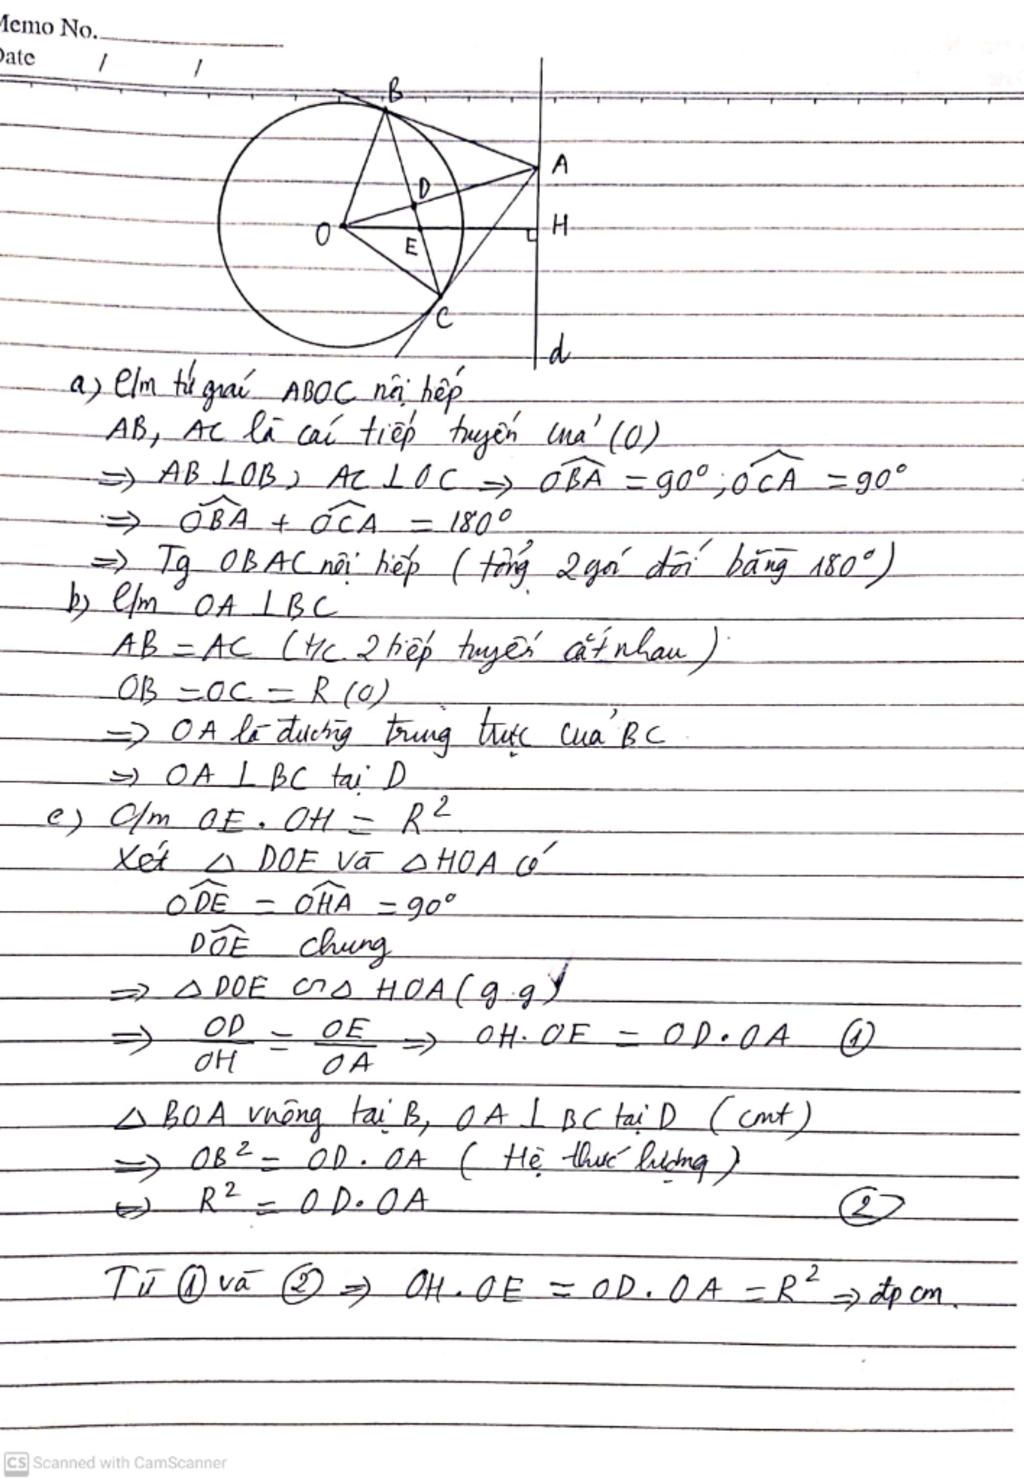 Memo No.
Date / /
B
A
D
O
E
H
C
d
a) C/m tứ giác ABOC nội tiếp
AB, AC là các tiếp tuyến của (O)
=> AB ⊥ OB, AC ⊥ OC => \widehat{OBA} = 90°; \widehat{OCA} = 90°
=> \widehat{OBA} + \widehat{OCA} = 180°
=> Tg OBAC nội tiếp (tổng 2 góc đối bằng 180°)
b) C/m OA ⊥ BC
AB = AC (t/c 2 tiếp tuyến cắt nhau)
OB = OC = R (O)
=> OA là đường trung trực của BC
=> OA ⊥ BC tại D
c) C/m OE . OH = R²
Xét △ DOE và △ HOA có
\widehat{ODE} = \widehat{OHA} = 90°
\widehat{DOE} chung
=> △ DOE ∽ △ HOA (g.g)
=> OD/OH = OE/OA => OH . OE = OD . OA ①
△ BOA vuông tại B, OA ⊥ BC tại D (cmt)
=> OB² = OD . OA (Hệ thức lượng)
<=> R² = OD . OA ②
Từ ① và ② => OH . OE = OD . OA = R² => đpcm.
CS Scanned with CamScanner